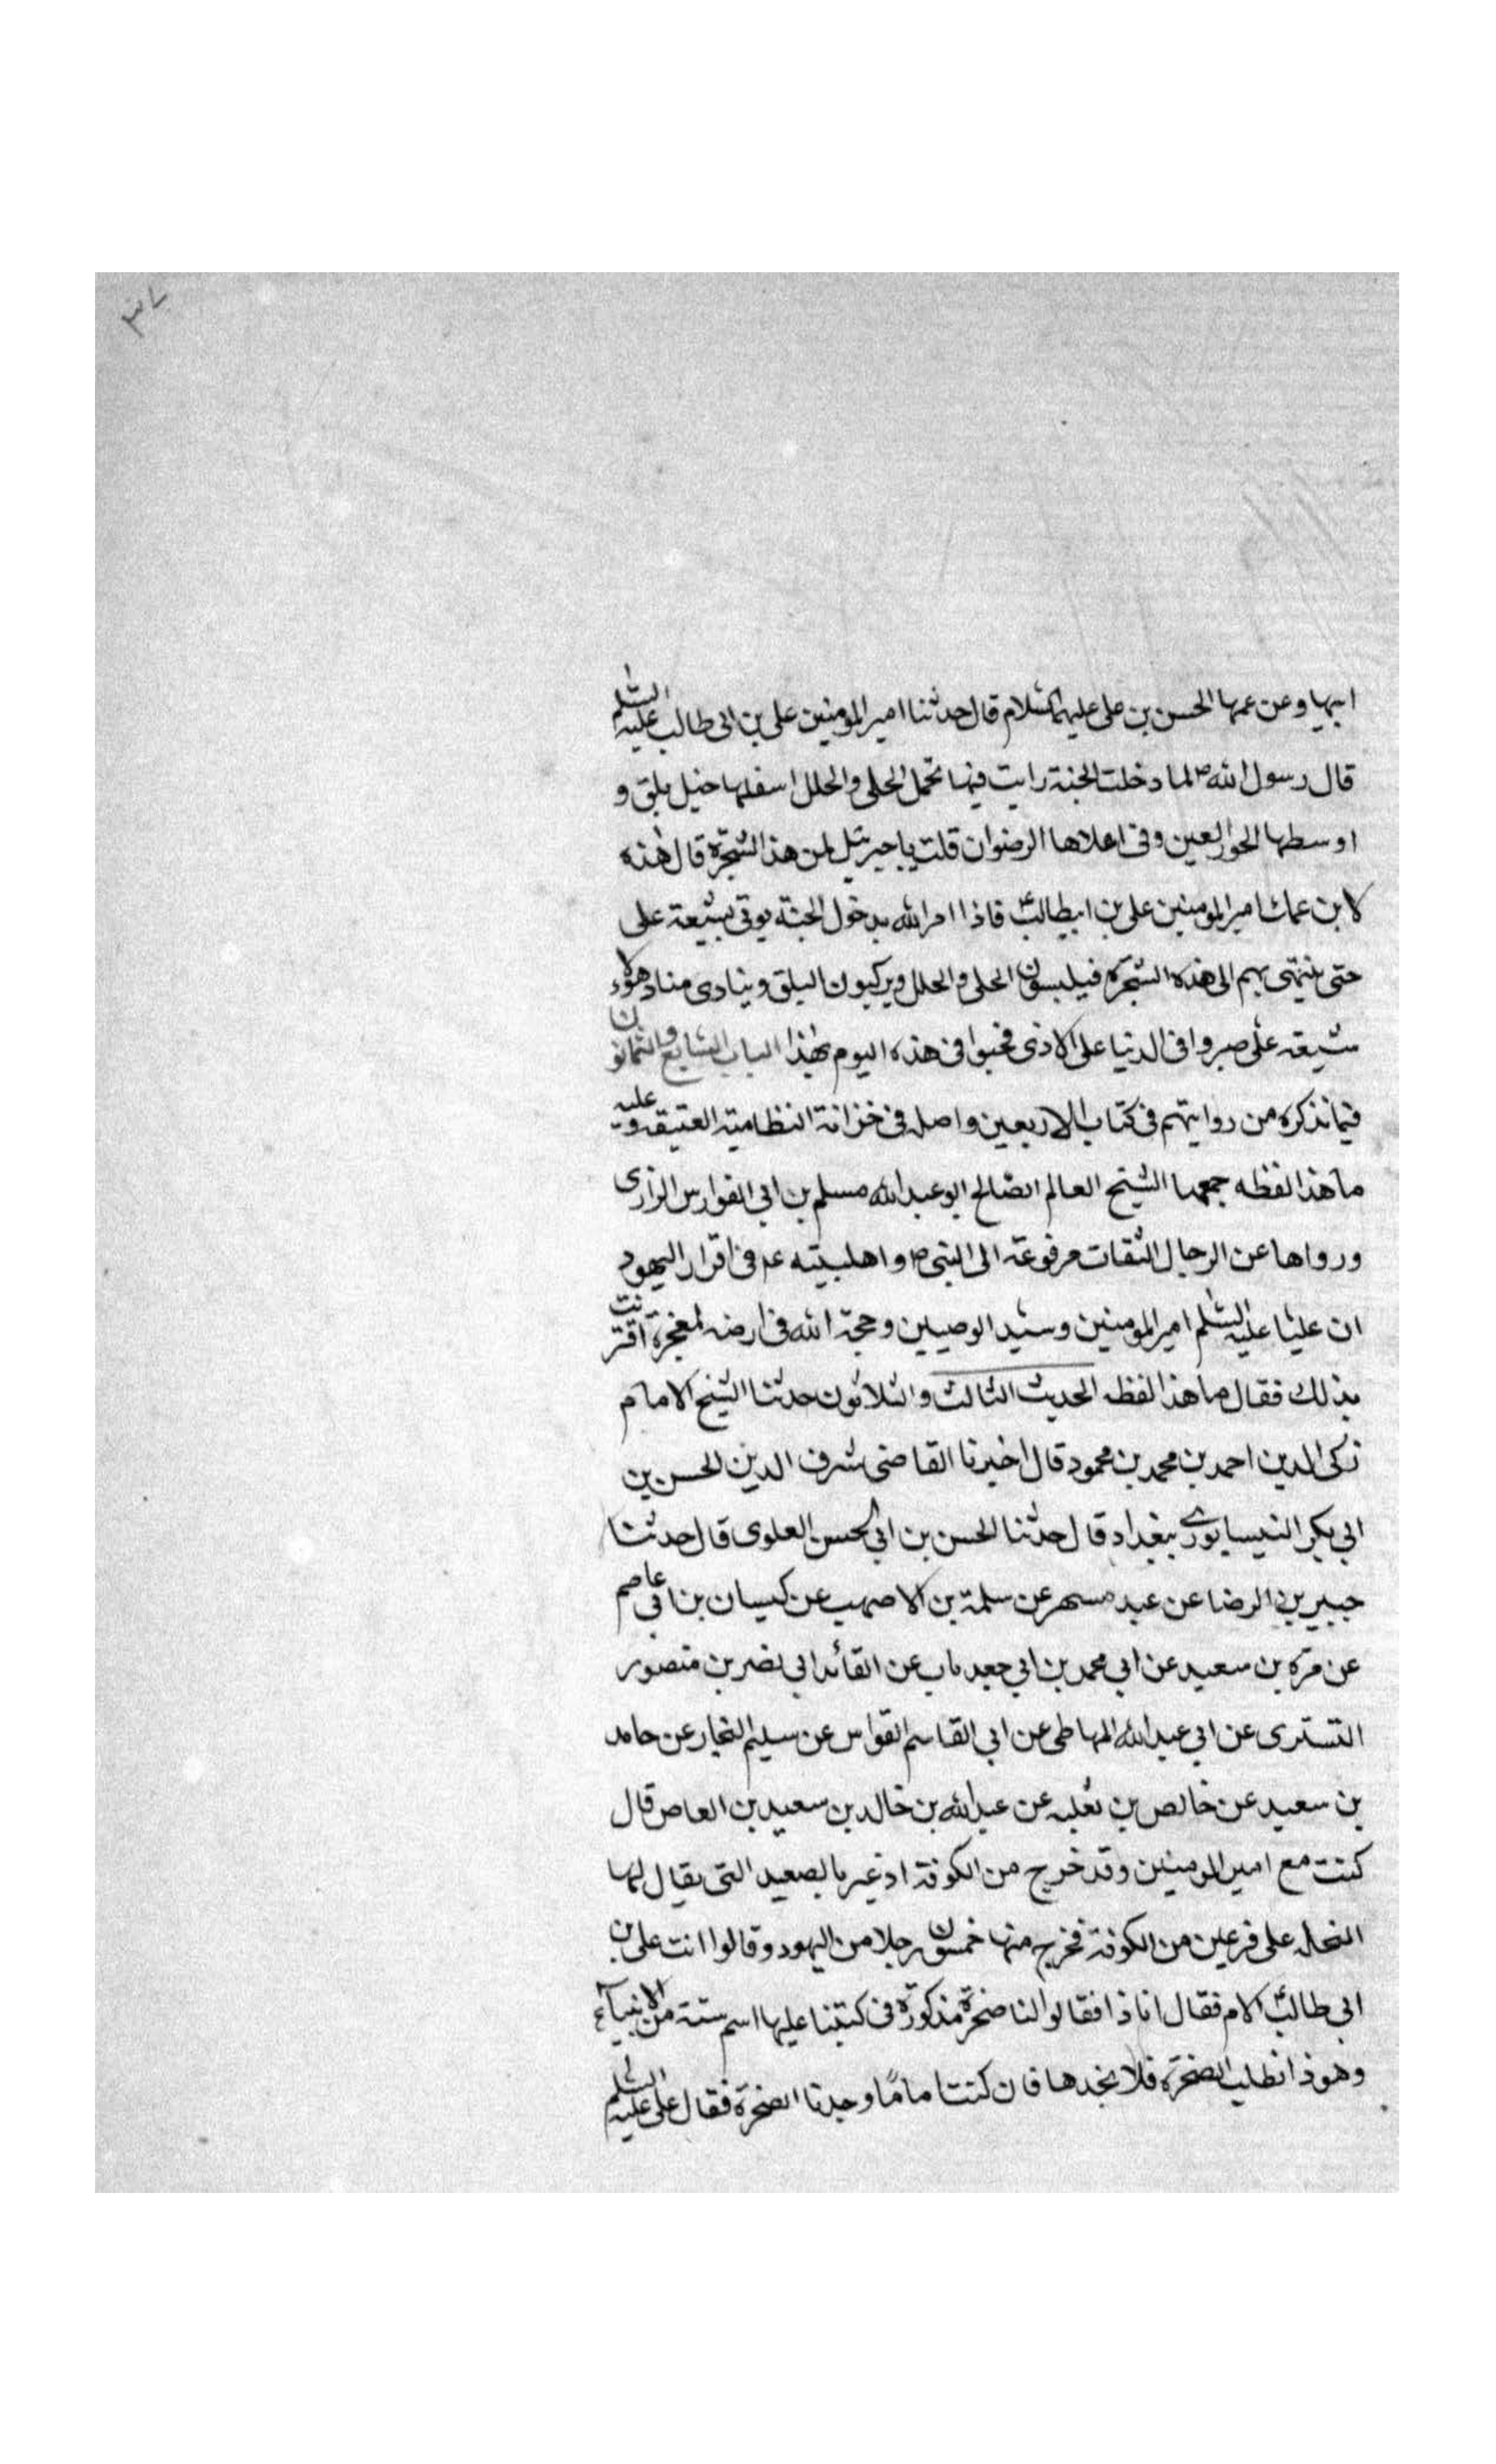 ٣٧
ابيها وعن عمها الحسن بن على عليهما السلام قال حدثنا امير المومنين على بن ابى طالب عليه السلم
قال رسول الله ص لما دخلت الجنة رايت فيها تحمل الحلى والحلل اسفلها خيل بلق و
اوسطها الحور العين وفى اعلاها الرضوان قلت يا جبرئيل لمن هذا الشجرة قال هذه
لابن عمك امير المومنين على بن ابيطالب ع فاذا امر الله بدخول الجنة يوتى بشيعة على
حتى ينتهى بهم الى هذه الشجرة فيلبسون الحلى والحلل ويركبون البلق وينادى مناد هؤلاء
شيعة على صبروا فى الدنيا على الاذى فحبوا فى هذه اليوم بهذا الباب السابع والثمانون
فيما نذكره من روايتهم فى كتاب الاربعين واصله فى خزانة النظامية العتيقه وعليه
ما هذا لفظه جمعها الشيخ العالم الصالح ابو عبد الله مسلم بن ابى الفوارس الرازى
ورواها عن الرجال الثقات مرفوعة الى النبى ص واهلبيته ع م فى اقرار اليهود
ان عليا عليه السلم امير المومنين وسيد الوصيين وحجة الله فى ارضه لمعجزة اقترنت
بذلك فقال ما هذا لفظه الحديث الثالث والثلاثون حدثنا الشيخ الامام
زكى الدين احمد بن محمد بن محمود قال اخبرنا القاضى شرف الدين الحسن بن
ابى بكر النيسابورى ببغداد قال حدثنا الحسن بن ابى الحسن العلوى قال حدثنا
جبير بن الرضا عن عبد مسهر عن سلمة بن الاصهب عن كيسان بن ابى عاصم
عن مرة بن سعيد عن ابى محمد بن ابى جعد باب عن القائد ابى نصر بن منصور
التسترى عن ابى عبد الله المهاطى عن ابى القاسم القواس عن سليم النجار عن حامد
بن سعيد عن خالص بن ثعلبه عن عبد الله بن خالد بن سعيد بن العاص قال
كنت مع امير المومنين وقد خرج من الكوفة اذ عبر بالصعيد التى يقال لها
النحله على فرعين من الكوفة فخرج منها خمسون رجلا من اليهود وقالوا انت على بن
ابى طالب ع الامام فقال انا ذا فقالوا لنا صخرة مذكورة فى كتبنا عليها اسم ستة من الانبيآء ع
وهوذا نطلب الصخرة فلا نجدها فان كنت اماما وجدنا الصخرة فقال على عليه السلم